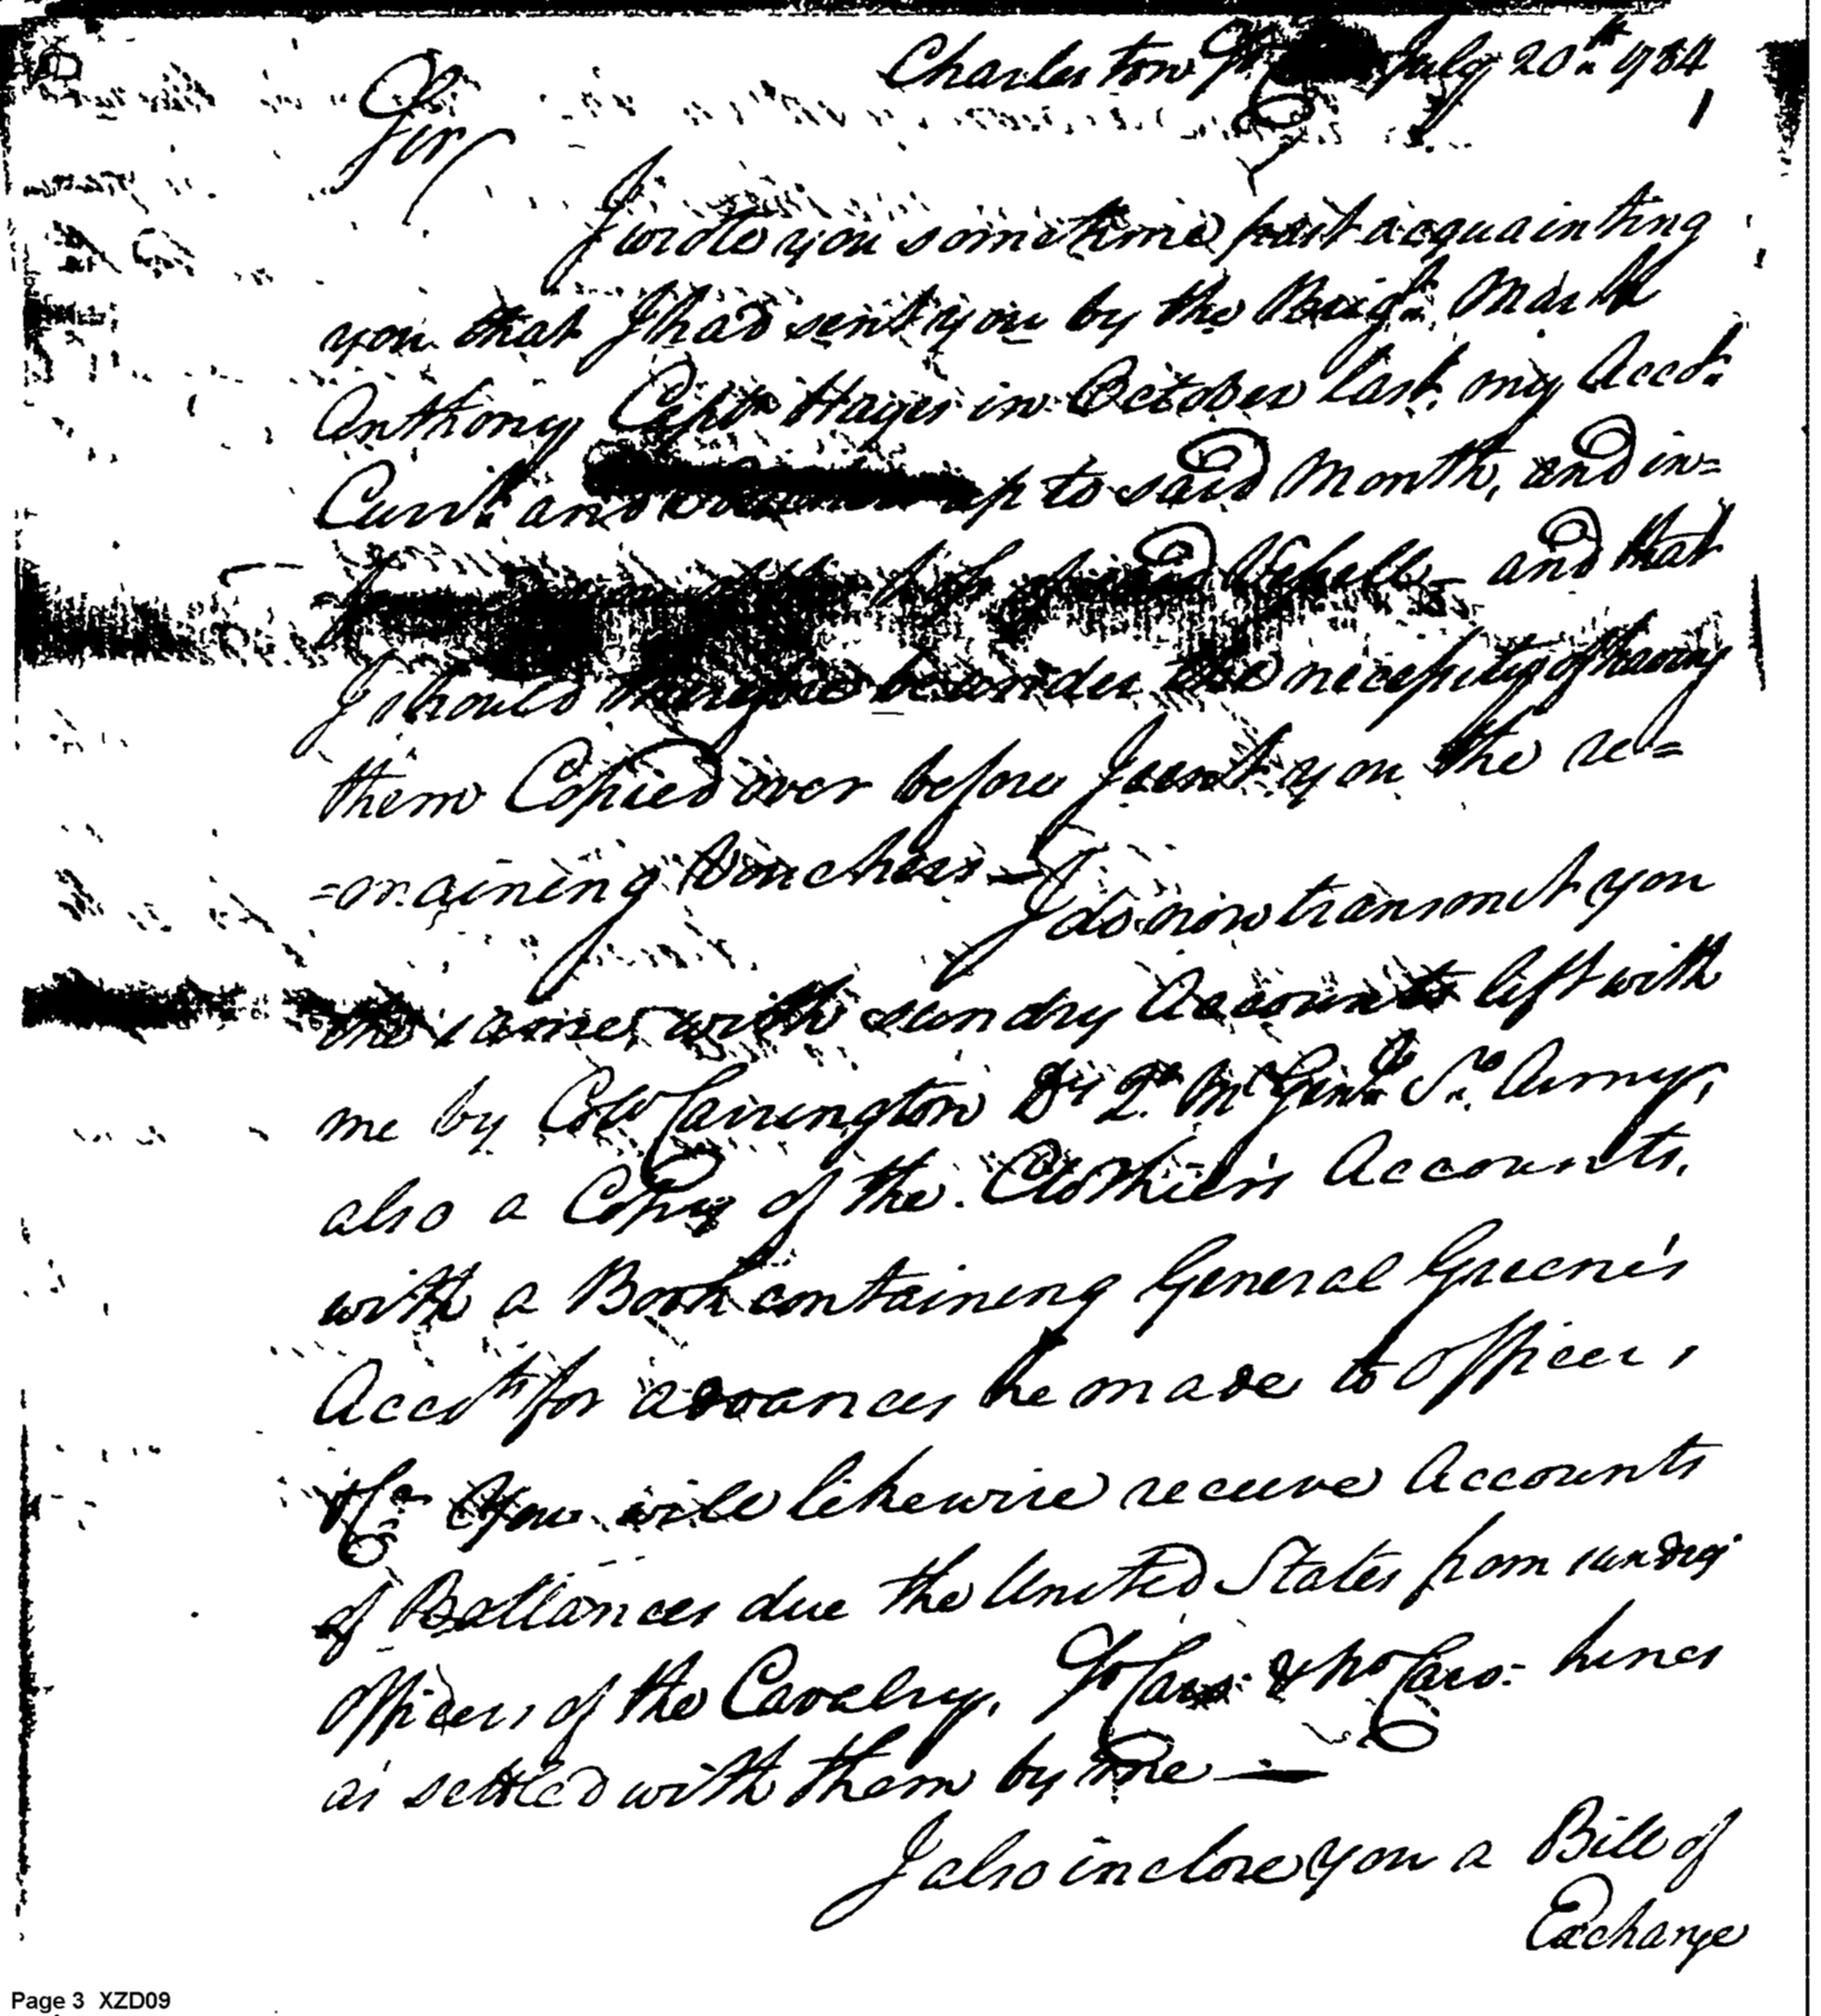 Charleston So July 20th 1784
Sir/
I wrote you sometime past acquainting
you that I had sent you by the Brigt. Mark
Anthony Captn Hayes in October last, my Accot.
Currt. and up to said Month, and in=
of the loss of said Vessell – and that
I should therefore be under the necessity of having
them Copied over before I sent you the re=
=maining Vouchers —
I do now transmit you
the same, with sundry Accounts left with
me by Col Carrington Dy Q. Mr Genl. So. Army,
also a Copy of the Clothier's Accounts,
with a Book containing General Greene's
Accots for advances he made to officers
&Ca You will likewise receive Accounts
of Ballances due the United States from sundry
officers of the Cavalry, So Caro. & No Caro. Lines
as settled with them by me —
I also inclose you a Bill of
Exchange
Page 3 XZD09